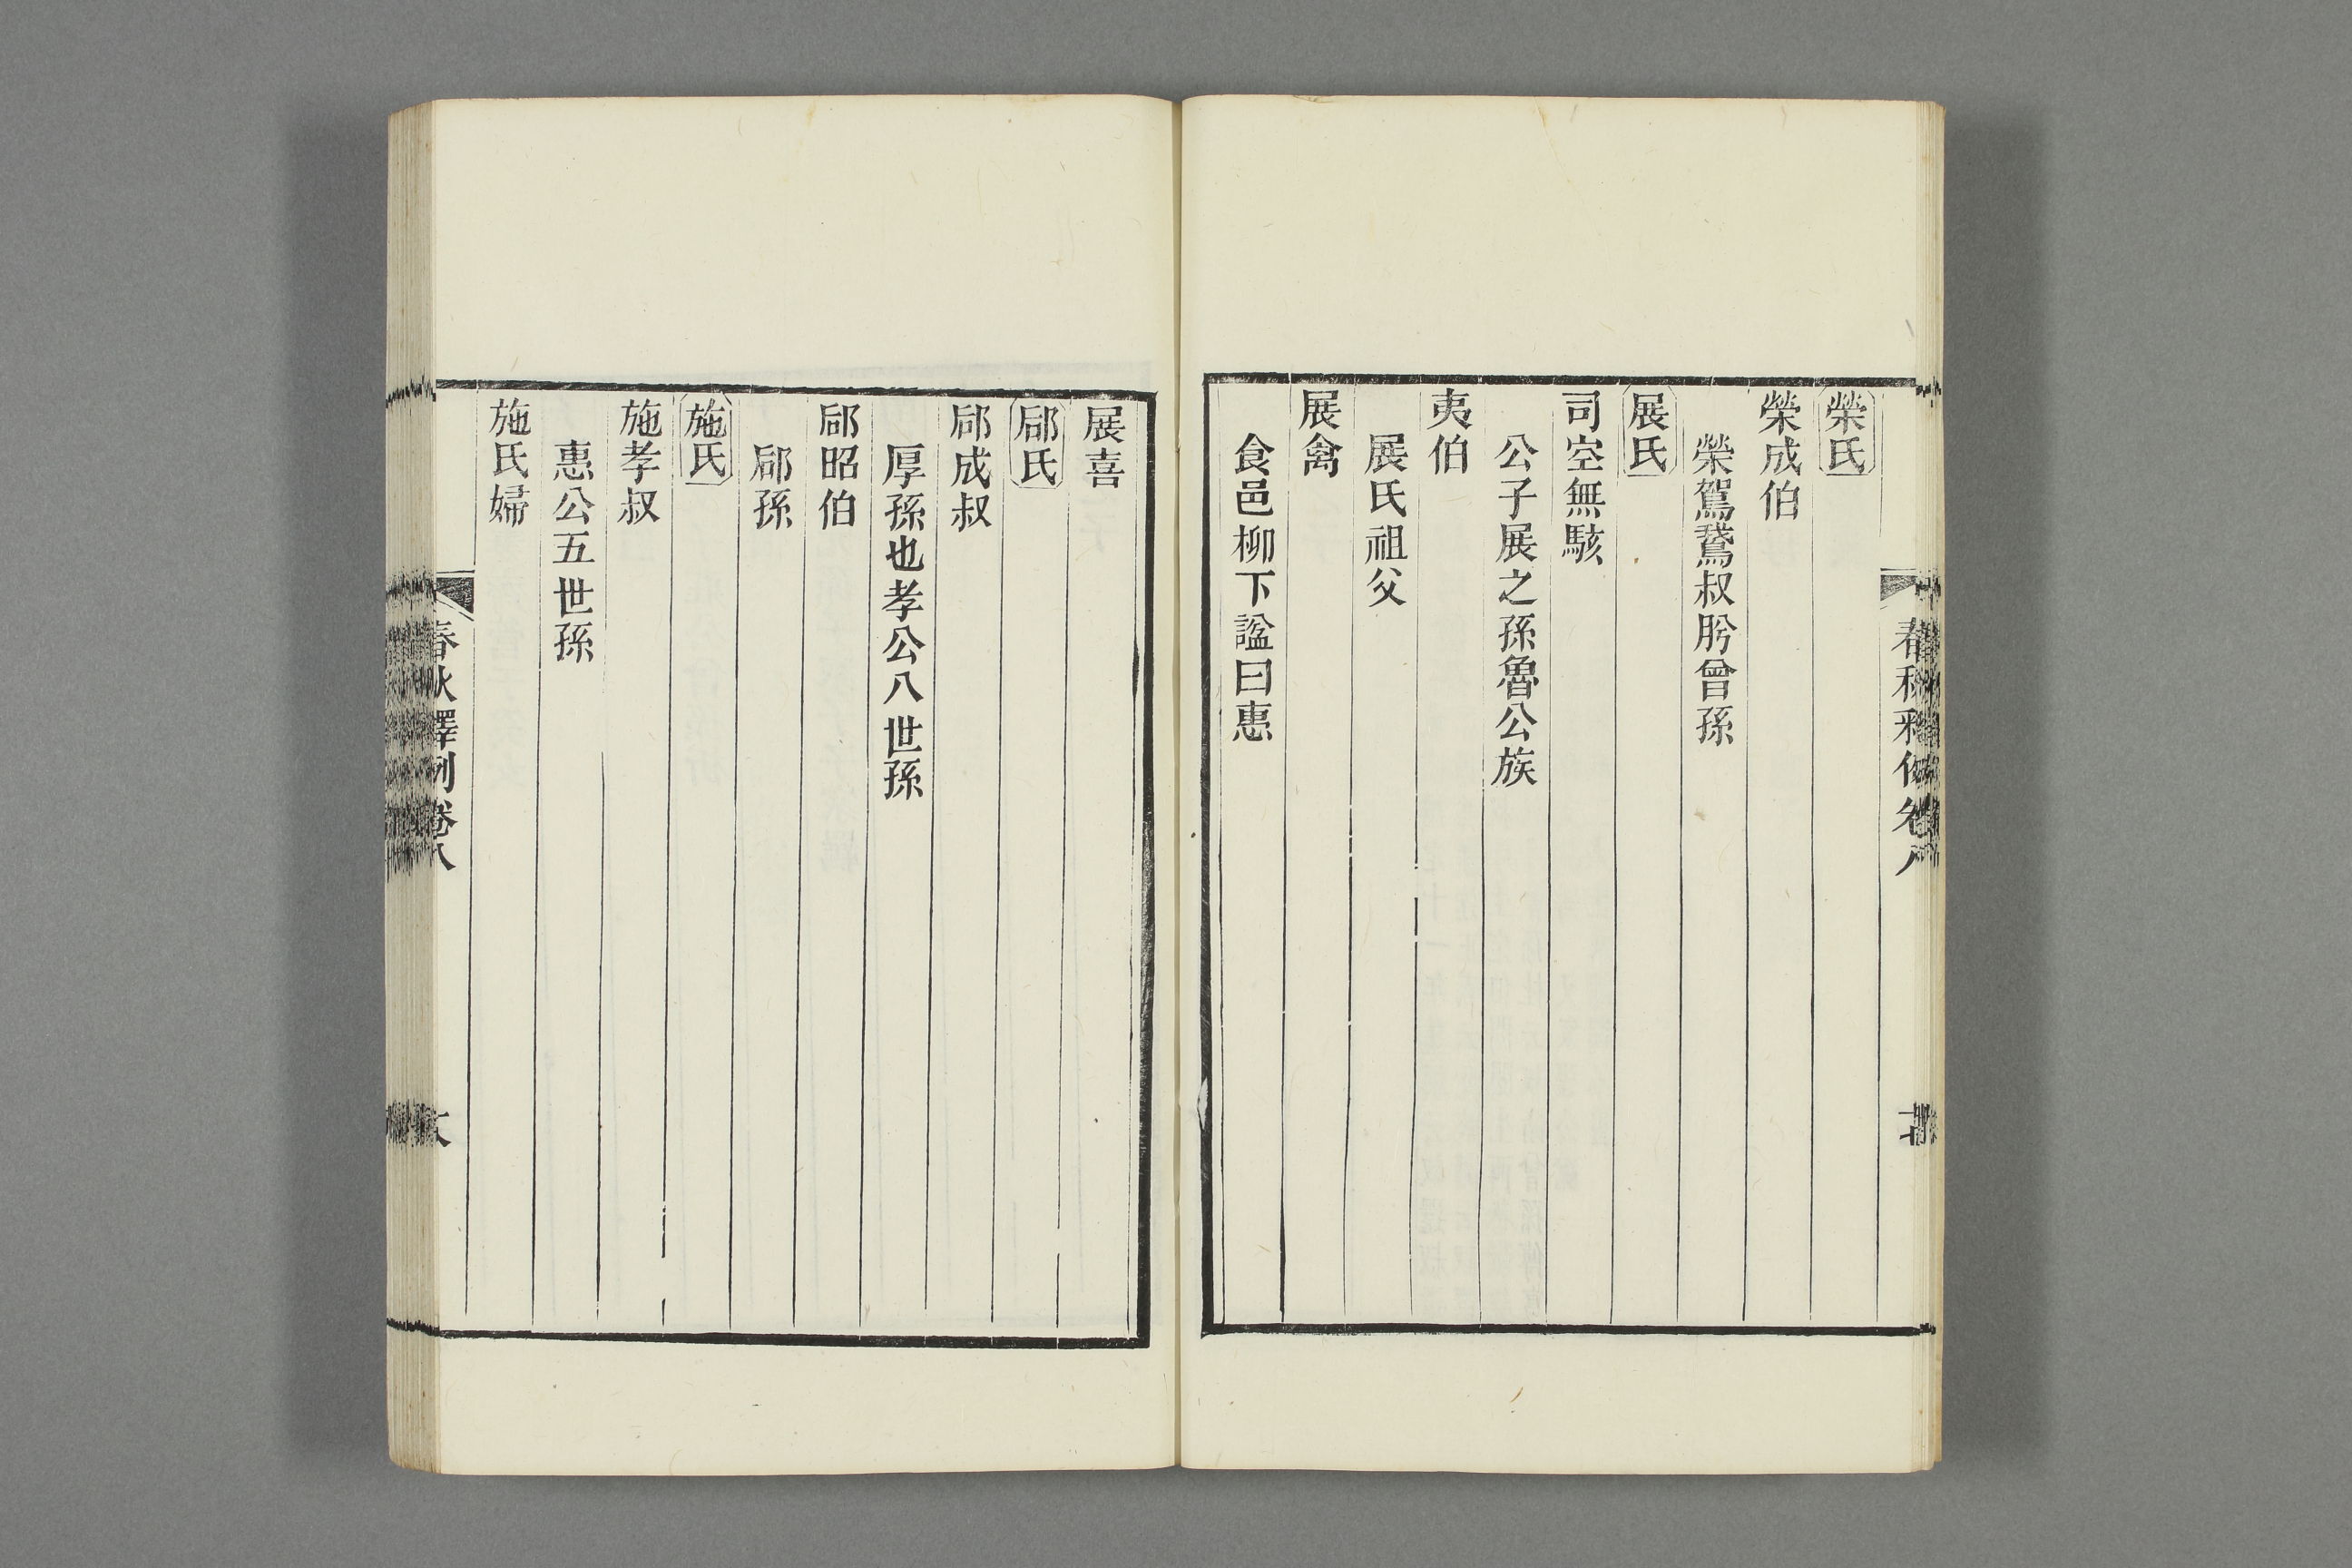 榮氏
榮成伯
榮駕鵞叔肸曾孫
展氏
司空無駭
公子展之孫魯公族
夷伯
展氏祖父
展禽
食邑柳下諡曰惠
展喜
郈氏
郈成叔
厚孫也孝公八世孫
郈昭伯
郈孫
施氏
施孝叔
惠公五世孫
施氏婦
春秋釋例卷八